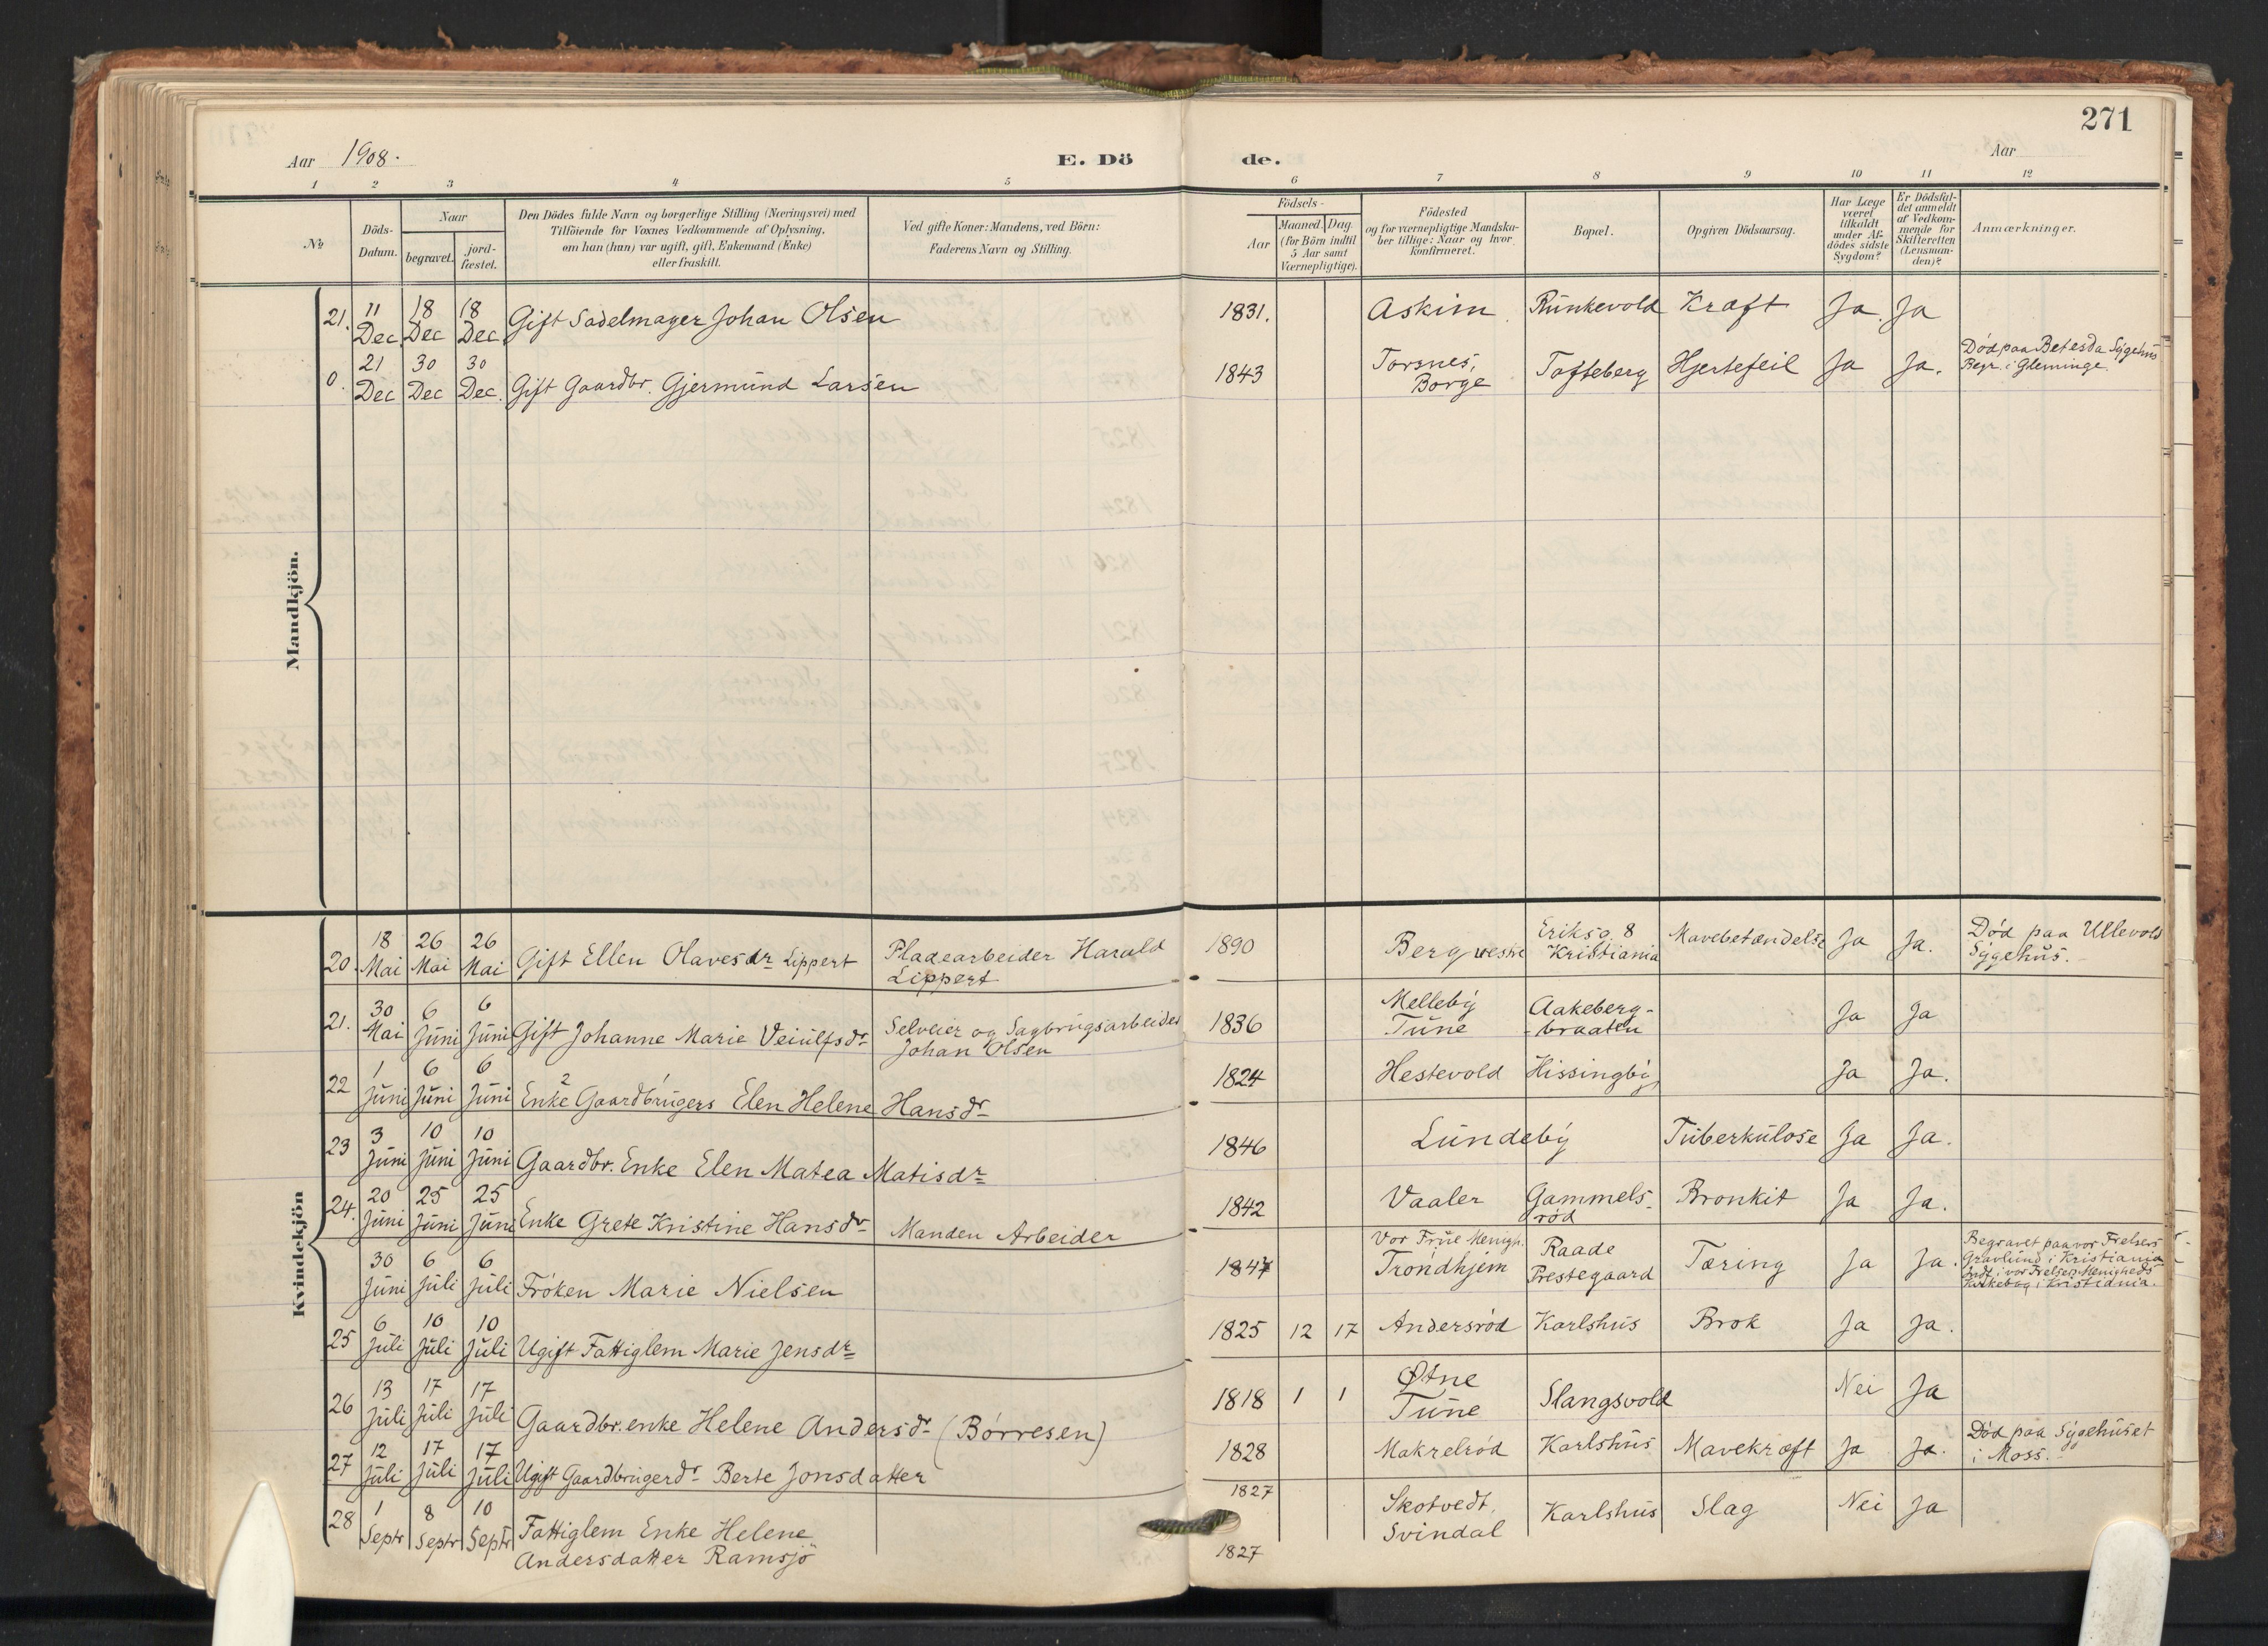 271
Aar 1908.
E. Dö
de.
Aar
1 2 3 4 5 6 7 8 9 10 11 12
No
Döds-
Datum.
Naar
begravet.
jord-
fæstet.
Den Dödes fulde Navn og borgerlige Stilling (Næringsvei) med
Tilföiende for Voxnes Vedkommende af Oplysning,
om han (hun) var ugift, gift, Enkemand (Enke)
eller fraskilt.
Ved gifte Koner: Mandens, ved Börn:
Faderens Navn og Stilling.
Födsels-
Aar
Maaned. Dag.
(for Börn indtil
5 Aar samt
Værnepligtige).
Födested
og for værnepligtige Mandska-
ber tillige: Naar og hvor
konfirmeret.
Bopæl.
Opgiven Dödsaarsag.
Har Læge
været
tilkaldt
under Af-
dödes sidste
Sygdom?
Er Dödsfal-
det anmeldt
af Vedkom-
mende for
Skifteretten
(Lensman-
den)?
Anmærkninger.
Mandkjön.
21. 11 Dec. 18 Dec 18 Dec. Gift Sadelmager Johan Olsen 1831. Askim Runkevold Kræft Ja. Ja
0. 21 Dec 30 Dec 30 Dec. Gift Gaardbr. Gjermund Larsen 1843 Torsnes, Borge Tofteberg Hjertefeil Ja Ja. Död paa Betesda Sygehus
Begr. i Glemminge.
Kvindekjön
20. 18 Mai 26 Mai 26 Mai Gift Ellen Olavesdr Lippert Pladearbeider Harald
Lippert 1890 Berg vestre Eriksg. 8
Kristiania Mavebetændelse Ja Ja. Död paa Ullevold
Sygehus.
21. 30 Mai 6 Juni 6 Juni Gift Johanne Marie Veiulfsdr Selveier og Sagbrugsarbeider
Johan Olsen 1836 Melleby
Tune Aakeberg-
braaten Ja Ja
22 1 Juni 6 Juni 6 Juni Enke 2 Gaardbrugers 1 Elen Helene Hansdr 1824 Hestevold Hissingby Ja Ja.
23 3 Juni 10 Juni 10 Juni Gaardbr. Enke Elen Matea Matisdr 1846 Lundeby Tuberkulose Ja Ja.
24. 20 Juni 25 Juni 25 Juni Enke Grete Kristine Hansdr Manden Arbeider 1842 Vaaler Gammels-
röd Bronkit Ja Ja.
30 Juni 6 Juli 6 Juli Fröken Marie Nielsen 1847 Vor Frue Menigh.
Trondhjem Raade
Prestegaard Tæring Ja Ja. Begravet paa vor Frelsers
Gravlund i Kristiania
Indf. i vor Frelsers Menigheds
Kirkebog i Kristiania.
25 6 Juli 10 Juli 10 Juli Ugift Fattiglem Marie Jensdr 1825 12 17 Andersröd Karlshus Brok Ja Ja.
26 13 Juli 17 Juli 17 Juli Gaardbr.enke Helene Andersdr (Börresen) 1818 1 1 Øtne
Tune Slangsvold Nei Ja
27 12 Juli 17 Juli 17 Juli Ugift Gaardbrugerdr Berte Jonsdatter 1828 Makrelröd Karlshus Mavekræft Ja Ja. Död paa Sygehuset
i Moss.
28 1 Septr 8 Septr 10 Septr Fattiglem Enke Helene
Andersdatter Ramsjö 1827 Skotvedt,
Svindal Karlshus Slag Nei Ja
1827